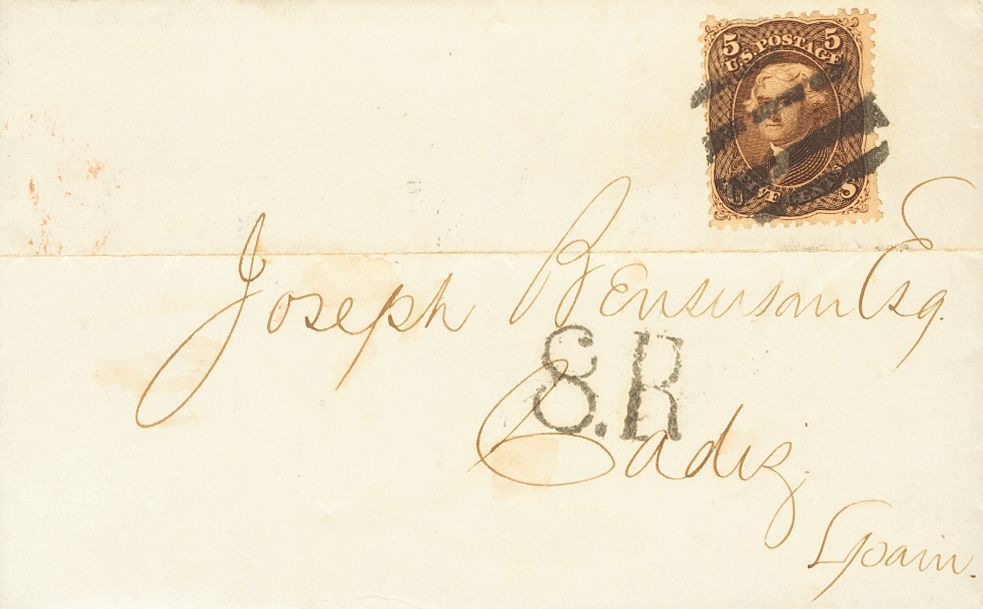 5 5
U.S. POSTAGE
FIVE CENTS
Joseph Bensuson Esq.
8.R
Cadiz.
Spain.